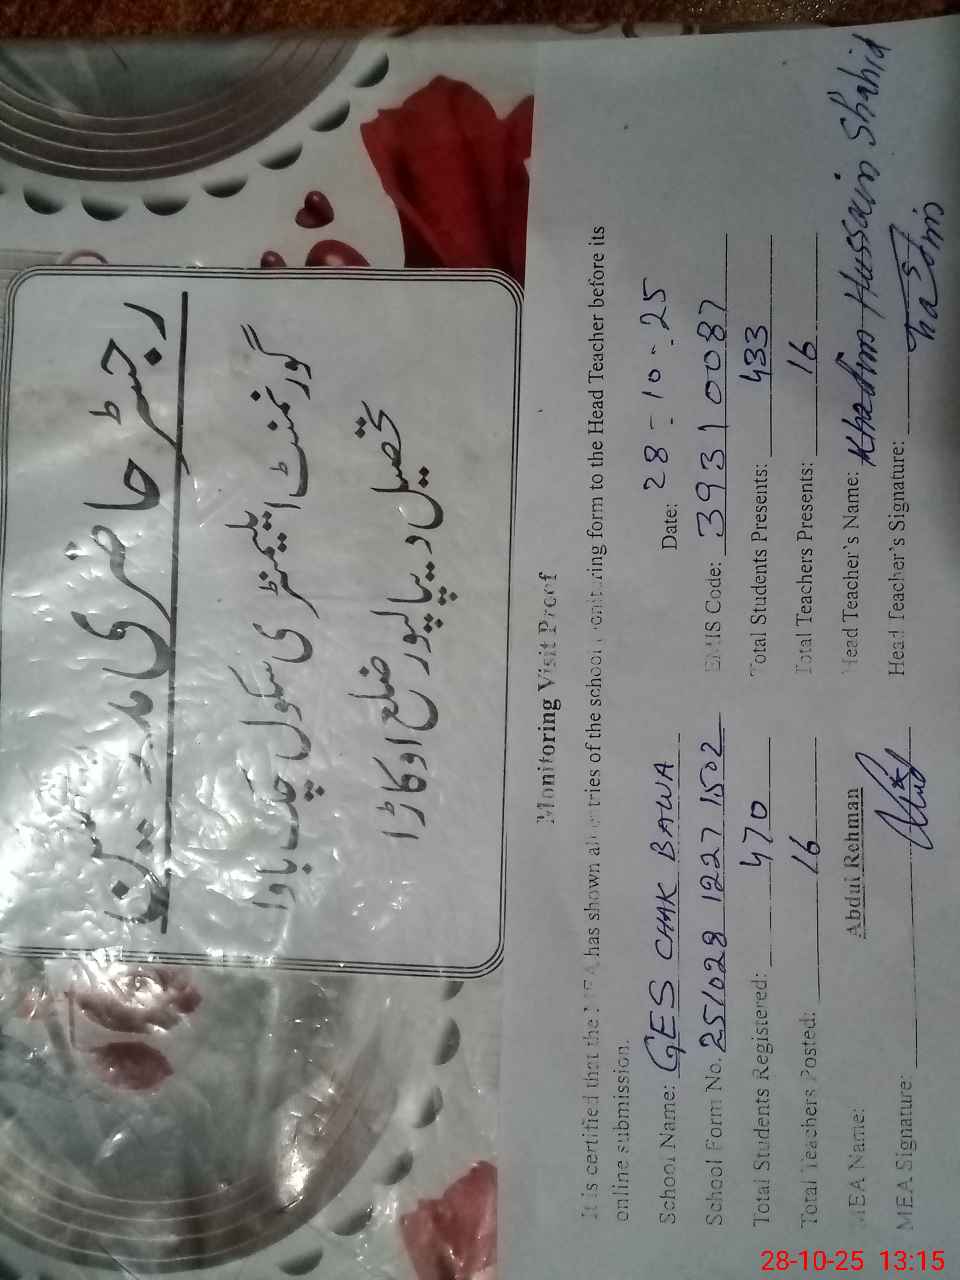 رجسٹر حاضری مدرسین
گورنمنٹ ایلیمنٹری سکول چک باوا
تحصیل دیپالپور ضلع اوکاڑا
Monitoring Visit Proof
It is certified that the MEA has shown all entries of the school monitoring form to the Head Teacher before its
online submission.
School Name: GES CHAK BAWA Date: 28-10-25
School Form No. 251028 1227 1502 EMIS Code: 39310087
Total Students Registered: 470 Total Students Presents: 433
Total Teachers Posted: 16 Total Teachers Presents: 16
MEA Name: Abdul Rehman Head Teacher's Name: Khadim Hussain Shahid
MEA Signature: Head Teacher's Signature:
28-10-25 13:15